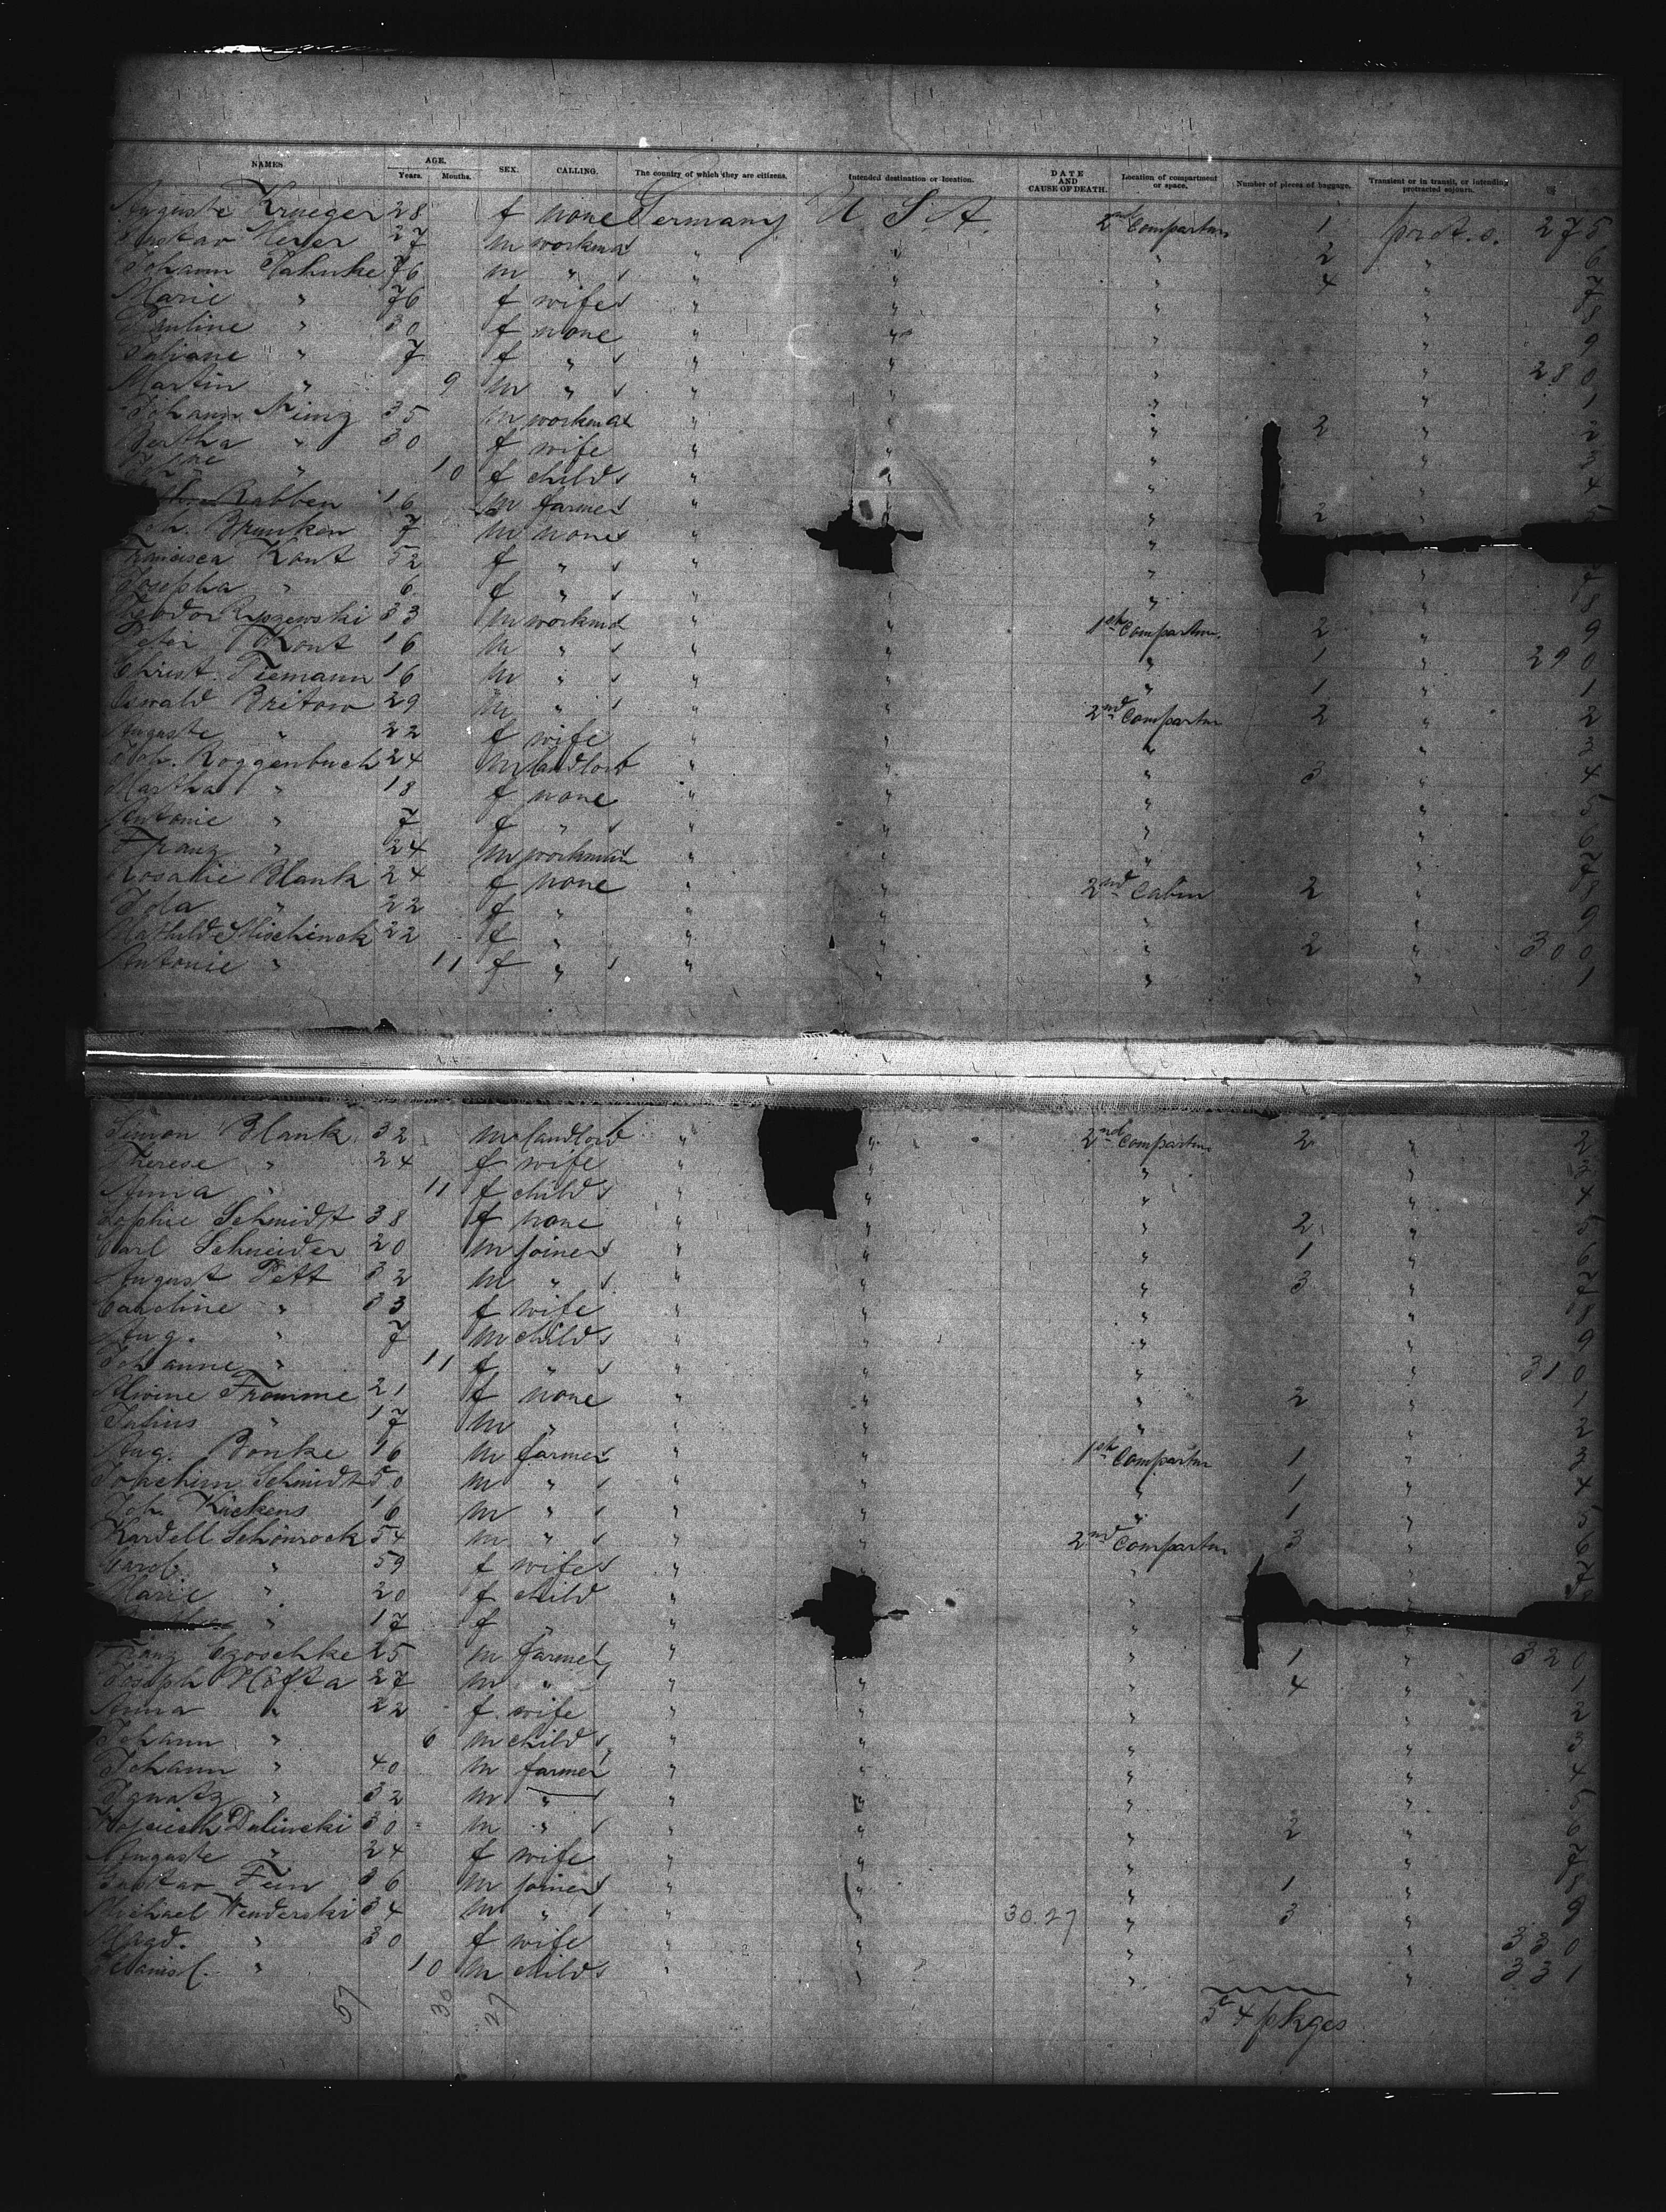 NAMES AGE. Years. Months. SEX. CALLING. The country of which they are citizens. Intended destination or location. DATE AND CAUSE OF DEATH. Location of compartment or space. Number of pieces of baggage. Transient or in transit, or intending protracted sojourn.
Auguste Krueger 28 f none Germany U. S. A. 2nd Compartm 1 275
Gustav 27 m workman " " " 2 " 6
Johann Jahnke 76 m " " " " 4 " 7
Marie " 76 f wife " " " " 8
Pauline " 30 f none " " " " 9
Juliane " 7 f " " " " " 280
Martin " 9 m " " " " " 1
Johann Nimz 35 m workman " " " 2 " 2
Bertha " 30 f wife " " " " 3
" 10 f child " " " " 4
Rabben 16 m farmer " " 2 "
Joh. Brunken 7 m none " "
Francisca Kont 52 f " " " " 7
Josepha " 6 f " " " " 8
Ryszewski 33 m workmn " " 1st Compartm. 2 " 9
Peter Kont 16 m " " " " 1 " 290
Christ. Tiemann 16 m " " " " 1 " 1
Oswald Britow 29 m " " " 2nd Compartm 2 " 2
Auguste " 22 f wife " " " " 3
Joh. Roggenbuch 24 m landlord " " " 3 " 4
Martha " 18 f none " " " " 5
Antonie " 7 f " " " " " 6
Franz " 24 m workman " " " " 7
Rosalie Blank 24 f none " " 2nd Cabin 2 " 8
Jda " 22 f " " " " " 9
Mathilde Mischinck 22 f " " " " 2 " 300
Antonie " 11 f " " " " " 1
Simon Blank 32 m landlord " " 2nd Compartm 2 " 2
Therese " 24 f wife " " " " 3
Anna " 11 f child " " " " 4
Sophie Schmidt 38 f none " " " 2 " 5
Carl Schneider 20 m joiner " " " 1 " 6
August Pett 32 m " " " " 3 " 7
Caroline " 33 f wife " " " " 8
Aug. " 7 m child " " " " 9
Johanne " 11 f " " " " " 310
Alwine Fromme 21 f none " " " 2 " 1
Julius " 17 m " " " " " 2
Aug. Bonke 16 m farmer " " 1st Compartm 1 " 3
Joachim Schmidt 50 m " " " " 1 " 4
Joh. Kickens 16 m " " " " 1 " 5
Kardell Schönrock 54 m " " " 2nd Compartm 3 " 6
Carol. " 59 f wife " " " " 7
Marie " 20 f child " "
" 17 f " " "
Franz Czoschke 25 m farmer " " 1 " 320
Joseph Höfta 27 m " " " " 4 " 1
Anna " 22 f wife " " " " 2
Johann " 6 m child " " " " 3
Johann " 40 m farmer " " " " 4
Ignatz " 32 m " " " " 5
Wojciech Dalinski 30 m " " " " 2 " 6
Auguste " 24 f wife " " " " 7
Gustav Fein 36 m joiner " " " 1 " 8
Michael Wenderski 34 m " " " 30.27 " 3 " 9
Magd. " 30 f wife " " " " 330
" 10 m child " " " " 331
57 30 27
54 pkges